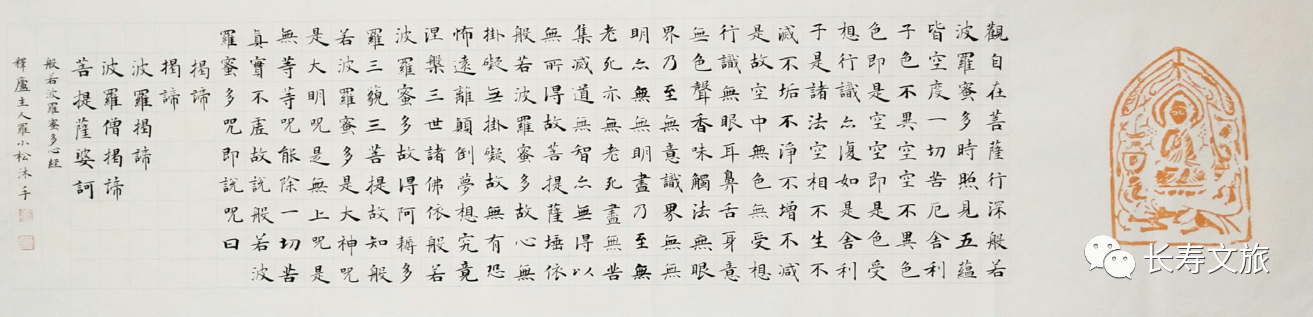 觀自在菩薩行深般若
波羅蜜多時照見五蘊
皆空度一切苦厄舍利
子色不異空空不異色
色即是空空即是色受
想行識亦復如是舍利
子是諸法空相不生不
滅不垢不淨不增不減
是故空中無色無受想
行識無眼耳鼻舌身意
無色聲香味觸法無眼
界乃至無意識界無無
明亦無無明盡乃至無
老死亦無老死盡無苦
集滅道無智亦無得以
無所得故菩提薩埵依
般若波羅蜜多故心無
掛礙無掛礙故無有恐
怖遠離顛倒夢想究竟
涅槃三世諸佛依般若
波羅蜜多故得阿耨多
羅三藐三菩提故知般
若波羅蜜多是大神呪
是大明呪是無上呪是
無等等呪能除一切苦
真實不虛故說般若波
羅蜜多呪即說呪曰
揭諦
揭諦
波羅揭諦
波羅僧揭諦
菩提薩婆訶
般若波羅蜜多心經
廬主人羅小松沐手
长寿文旅